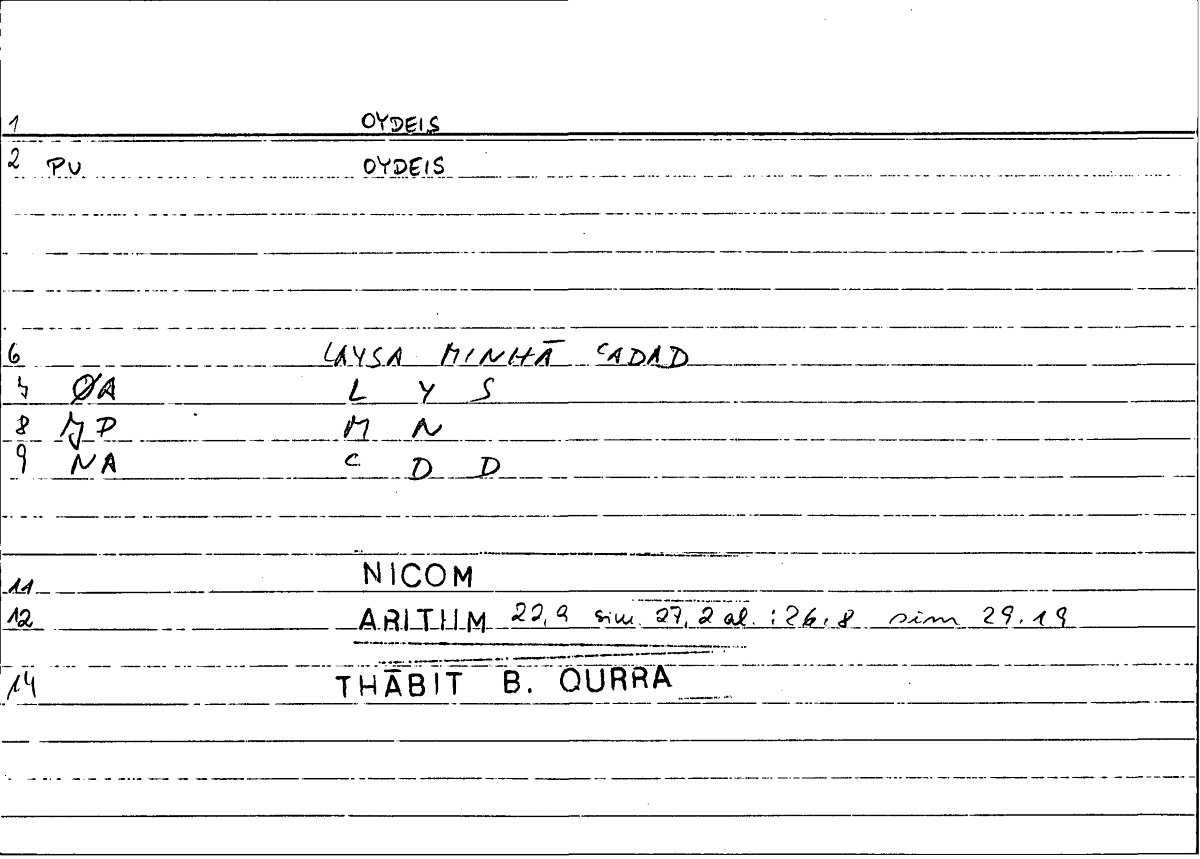 1 OYDEIS
2 PU OYDEIS
6 LAYSA MINHĀ ʿADAD
7 ØA L Y S
8 MP M N
9 NA ʿ D D
11 NICOM
12 ARITHM 22,9 sim. 27,2 al. : 26.8 sim 29.19
14 THĀBIT B. QURRA